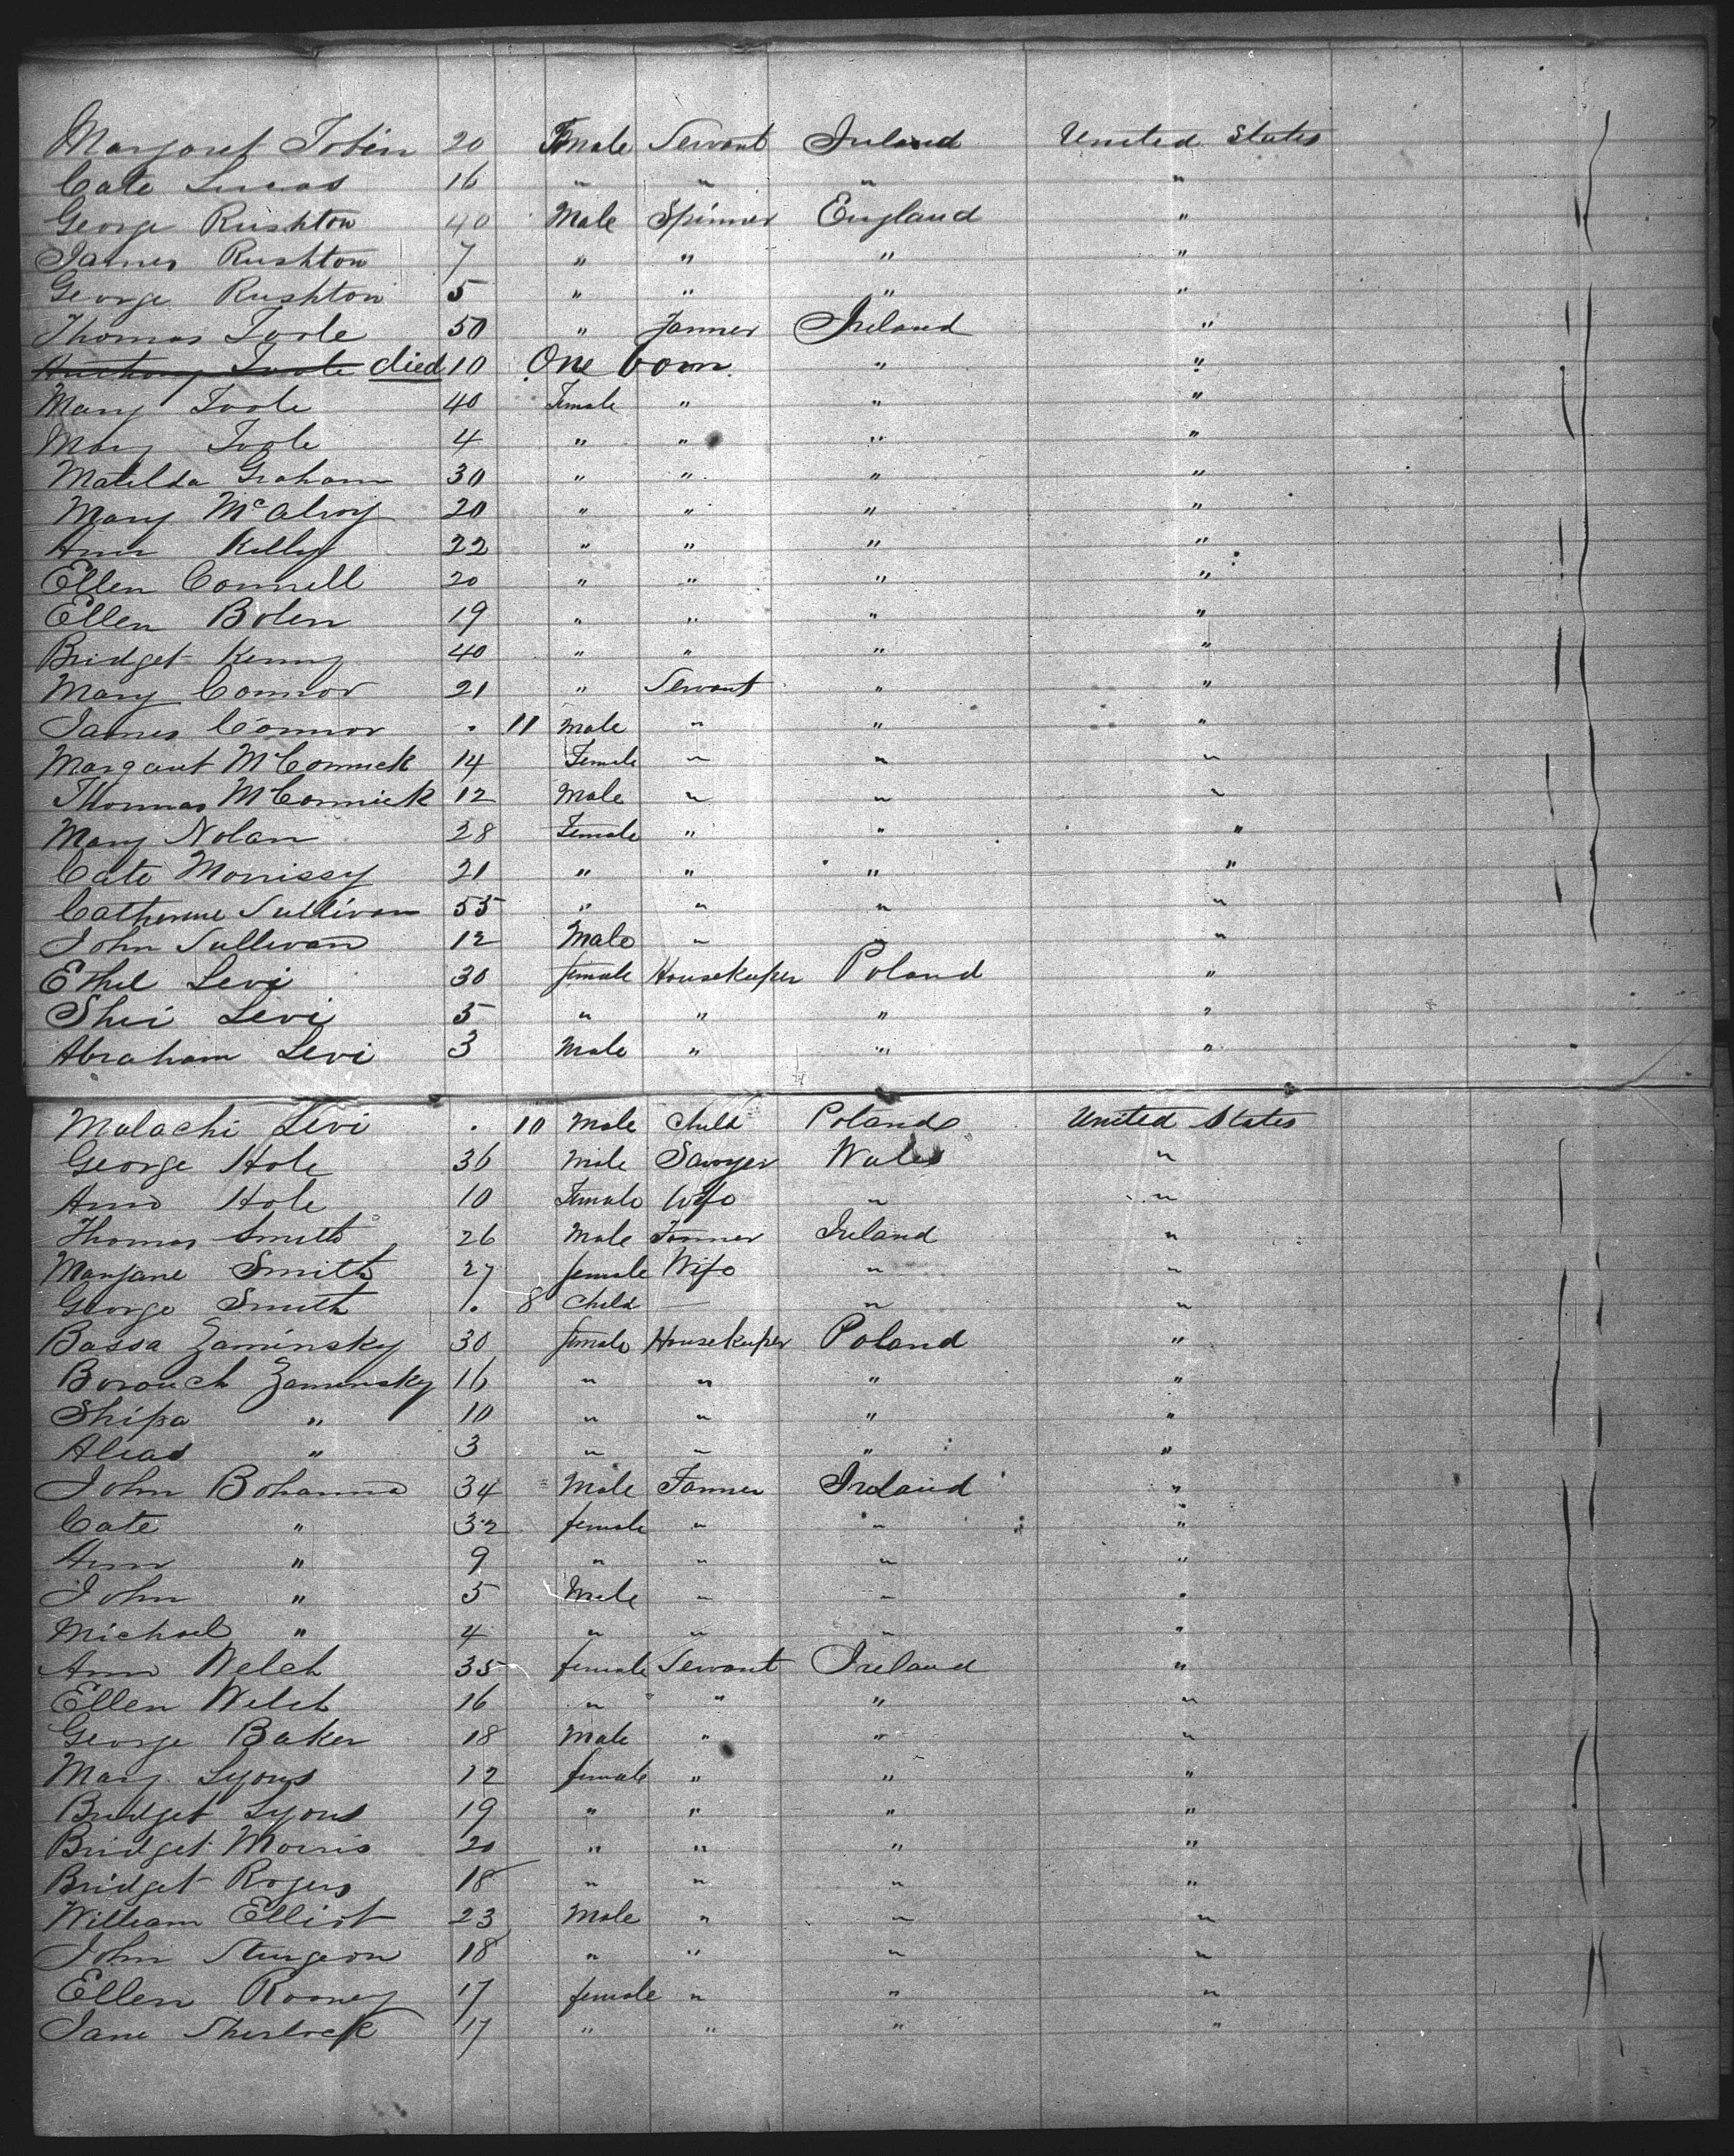 Margaret Tobin 20 Female Servant Ireland United States
Cate Lucas 16 " " " "
George Rushton 40 Male Spinner England "
James Rushton 7 " " " "
George Rushton 5 " " " "
Thomas Toole 50 " Farmer Ireland "
Anthony Toole died 10 One born " "
Mary Toole 40 Female " " "
Mary Toole 4 " " " "
Matilda Graham 30 " " " "
Mary McAlroy 20 " " " "
Ann Killy 22 " " " "
Ellen Connell 20 " " " "
Ellen Bolen 19 " " " "
Bridget Kenny 40 " " " "
Mary Connor 21 " Servant " "
James Connor . 11 Male " " "
Margaret McCormick 14 Female " " "
Thomas McCormick 12 Male " " "
Mary Nolan 28 Female " " "
Cate Morrissy 21 " " " "
Catherine Sullivan 55 " " " "
John Sullivan 12 Male " " "
Ethel Levi 30 female Housekeeper Poland "
Shei Levi 5 " " " "
Abraham Levi 3 Male " " "
Malachi Levi . 10 Male Child Poland United States
George Hole 36 Male Sawyer Wales "
Ann Hole 10 Female Wife " "
Thomas Smith 26 Male Farmer Ireland "
Maryjane Smith 27 female Wife " "
George Smith 1. 8 Child — " "
Bassa Zaminsky 30 female Housekeeper Poland "
Borouch Zaminsky 16 " " " "
Shipa " 10 " " " "
Alias " 3 " " " "
John Bohanna 34 Male Farmer Ireland "
Cate " 32 female " " "
Ann " 9 " " " "
John " 5 Male " " "
Michael " 4 " " " "
Ann Welch 35 female Servant Ireland "
Ellen Welch 16 " " " "
George Baker 18 Male " " "
Mary Lyons 12 female " " "
Bridget Lyons 19 " " " "
Bridget Morris 20 " " " "
Bridget Rogers 18 " " " "
William Elliot 23 Male " " "
John Sturgeon 18 " " " "
Ellen Rooney 17 female " " "
Jane Sherlock 17 " " " "